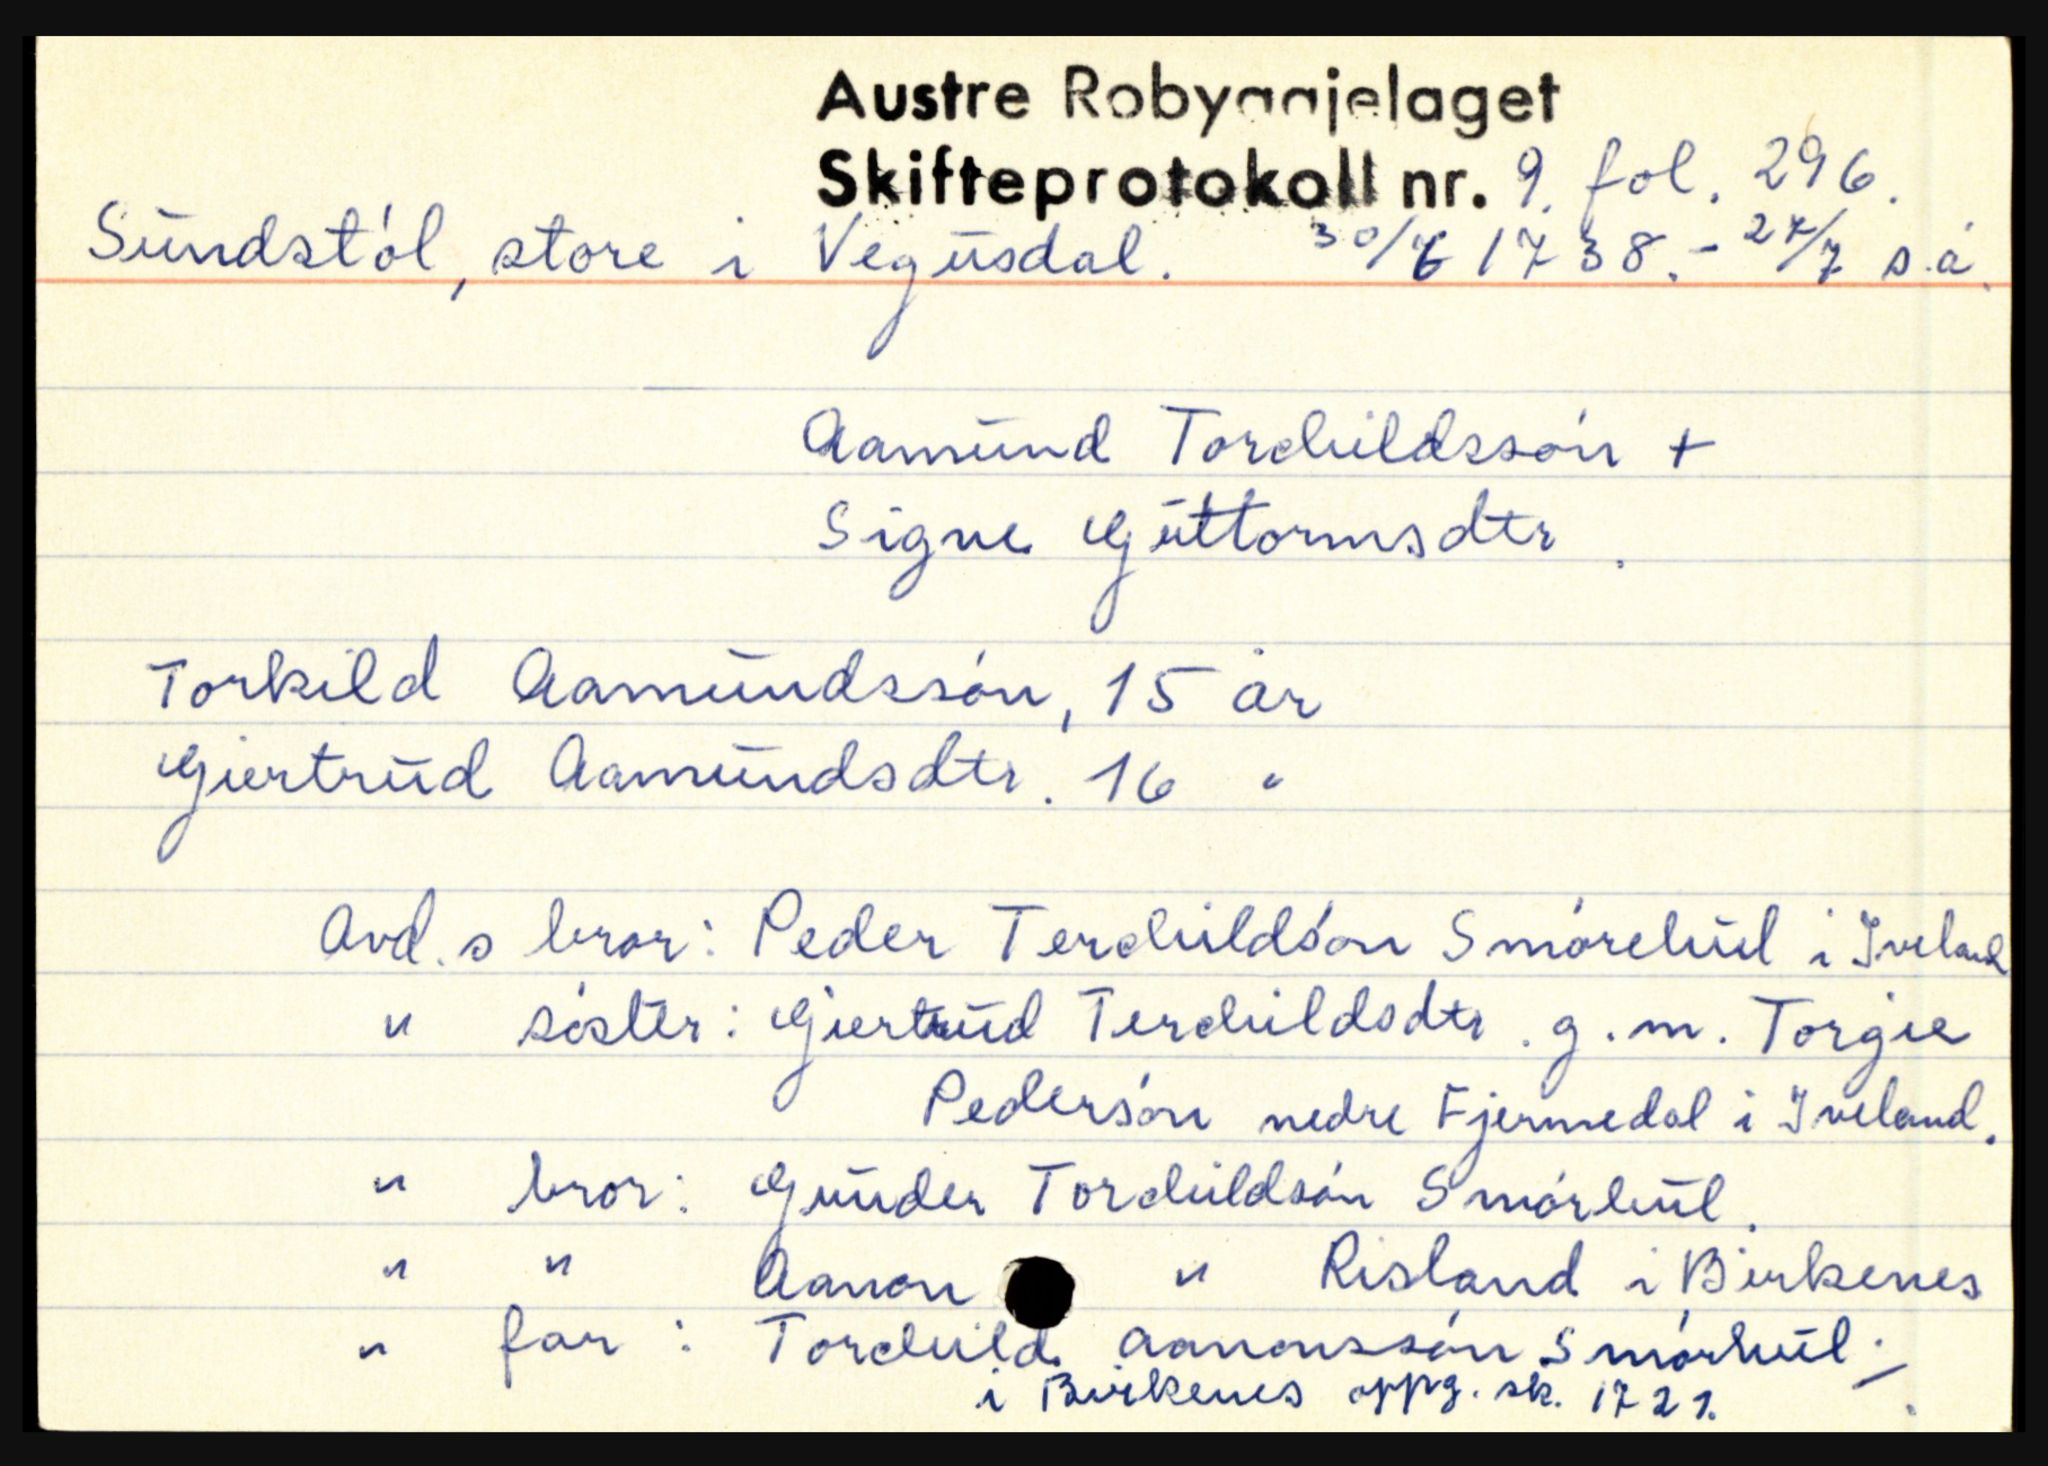 Austre Robyggjelaget
Skifteprotokoll nr. 9. fol. 296.
Sundstøl, store i Vegusdal. 30/6 1738. - 24/7 s.å.
Aamund Torchildssøn +
Signe Guttormsdtr.
Torkild Aamundssøn, 15 år
Giertrud Aamundsdtr. 16 "
Avd.s bror: Peder Terchildsøn Smørehul i Iveland
" søster: Giertrud Terchildsdtr. g.m. Torgie
Pedersøn nedre Fjermedal i Iveland.
" bror: Gunder Torchildsøn Smørhul.
" " Aanon " Risland i Birkenes
" far: Torchild Aanonssøn Smørhul
i Birkenes oppg. sk. 1721.